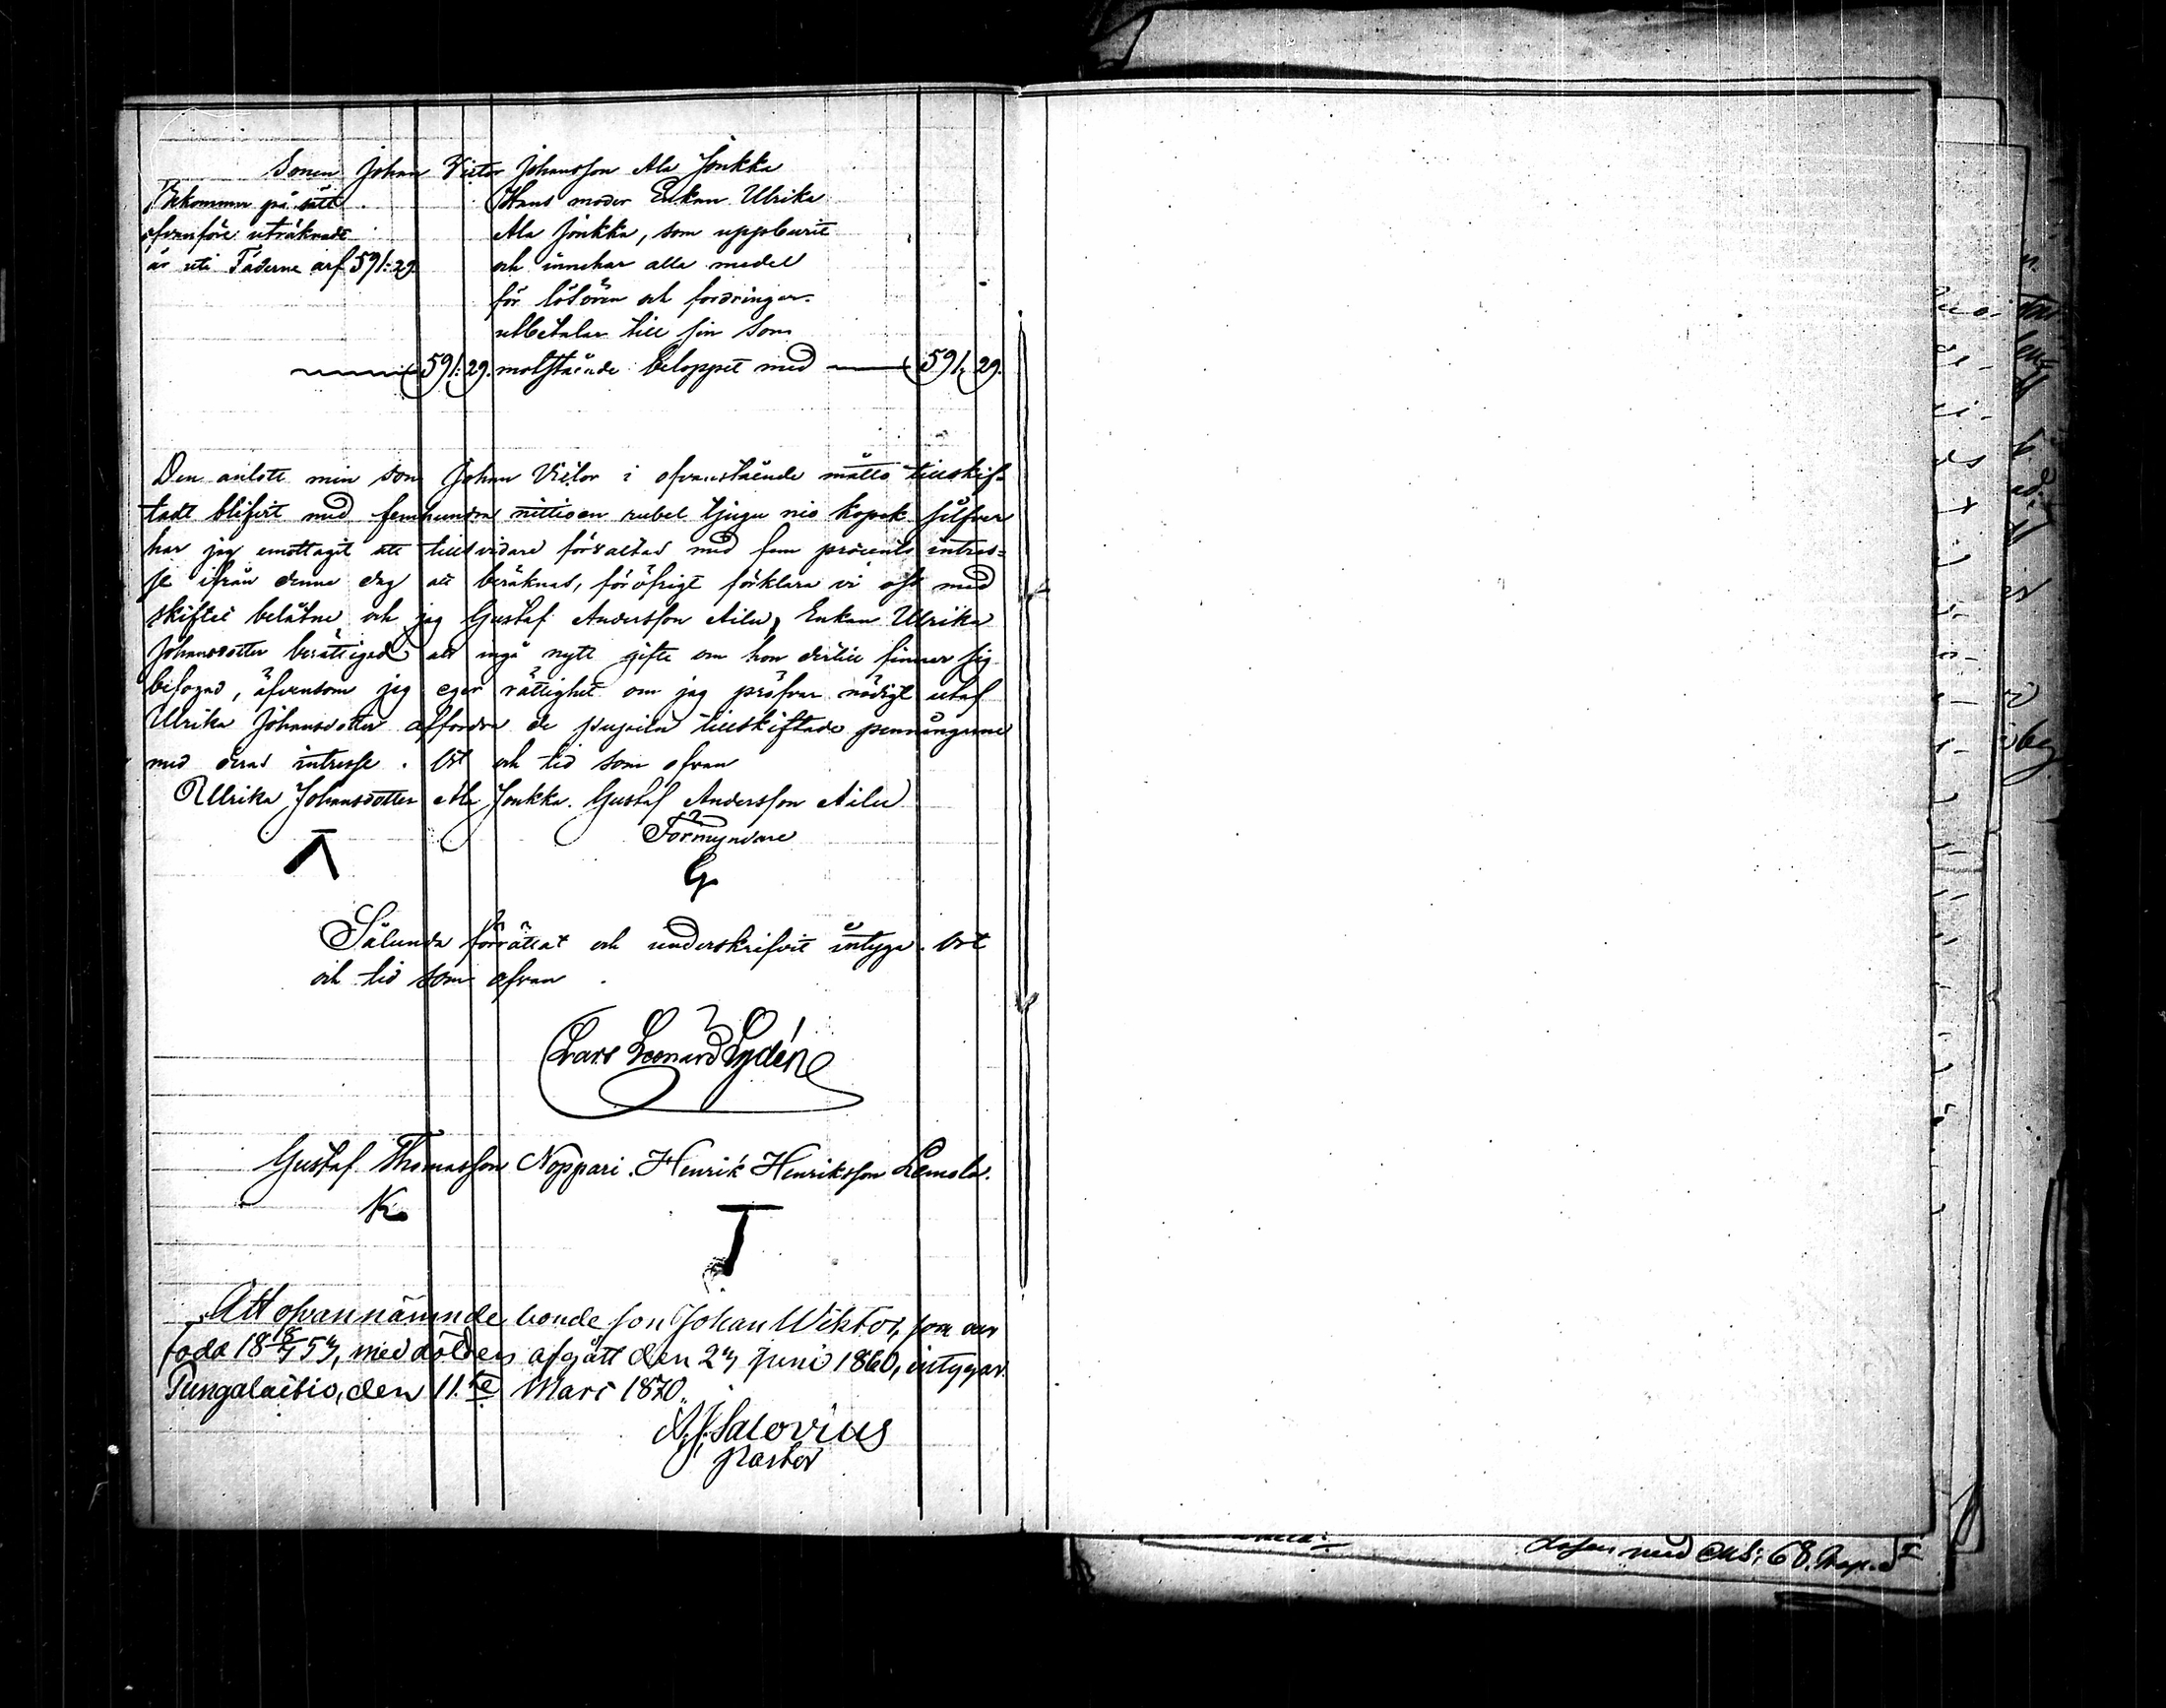 Sonen Johan Victor Johansson Ala Jonkka
Bekommer på sätt
ofvanföre uträknadt
är uti Fäderne arf 591:29.
Hans moder Enkan Ulrika
Ala Jonkka, som uppburit
och innehar alla medel
för lösören och fordringar
utbetalar till sin Son
591: 29. motstående beloppet med 591, 29.
Den anlott min son Johan Victor i ofvanstående måtto tillskif-
tadt blifvit med femhundra nittioen rubel tjugu nio kopek silfver
har jag emottagit att tillsvidare förvaltas med fem procents intres-
se ifrån denna dag att beräknas, föröfrigt förklara vi oss med
skiftet belåtne och jag Gustaf Andersson Ailu, Enkan Ulrika
Johansdotter berättigad att ingå nytt gifte om hon dertill finner sig
befogad, äfvensom jag eger rättighet om jag pröfvar nödigt utaf
Ulrika Johansdotter affordra de pupilln tillskiftade penningarne
med deras intresse. Ort och tid som ofvan
Ullrika Johansdotter Ala Jonkka. Gustaf Andersson Ailu
Förmyndare
G
Sålunda förrättat och underskrifvit intyga. Ort
och tid som ofvan.
Lars Leonard Lydén
Gustaf Thomasson Noppari. Henrik Henriksson Lemola.
K
T
Att ofvannämnde bonde son Johan Wiktor, som var
född 18 18/7 57, med döden afgått den 27 Juni 1860, intygar.
Pungalaitio, den 11te Mars 1870.
Salovius
Pastor
Lösen med 68. kop. Sr